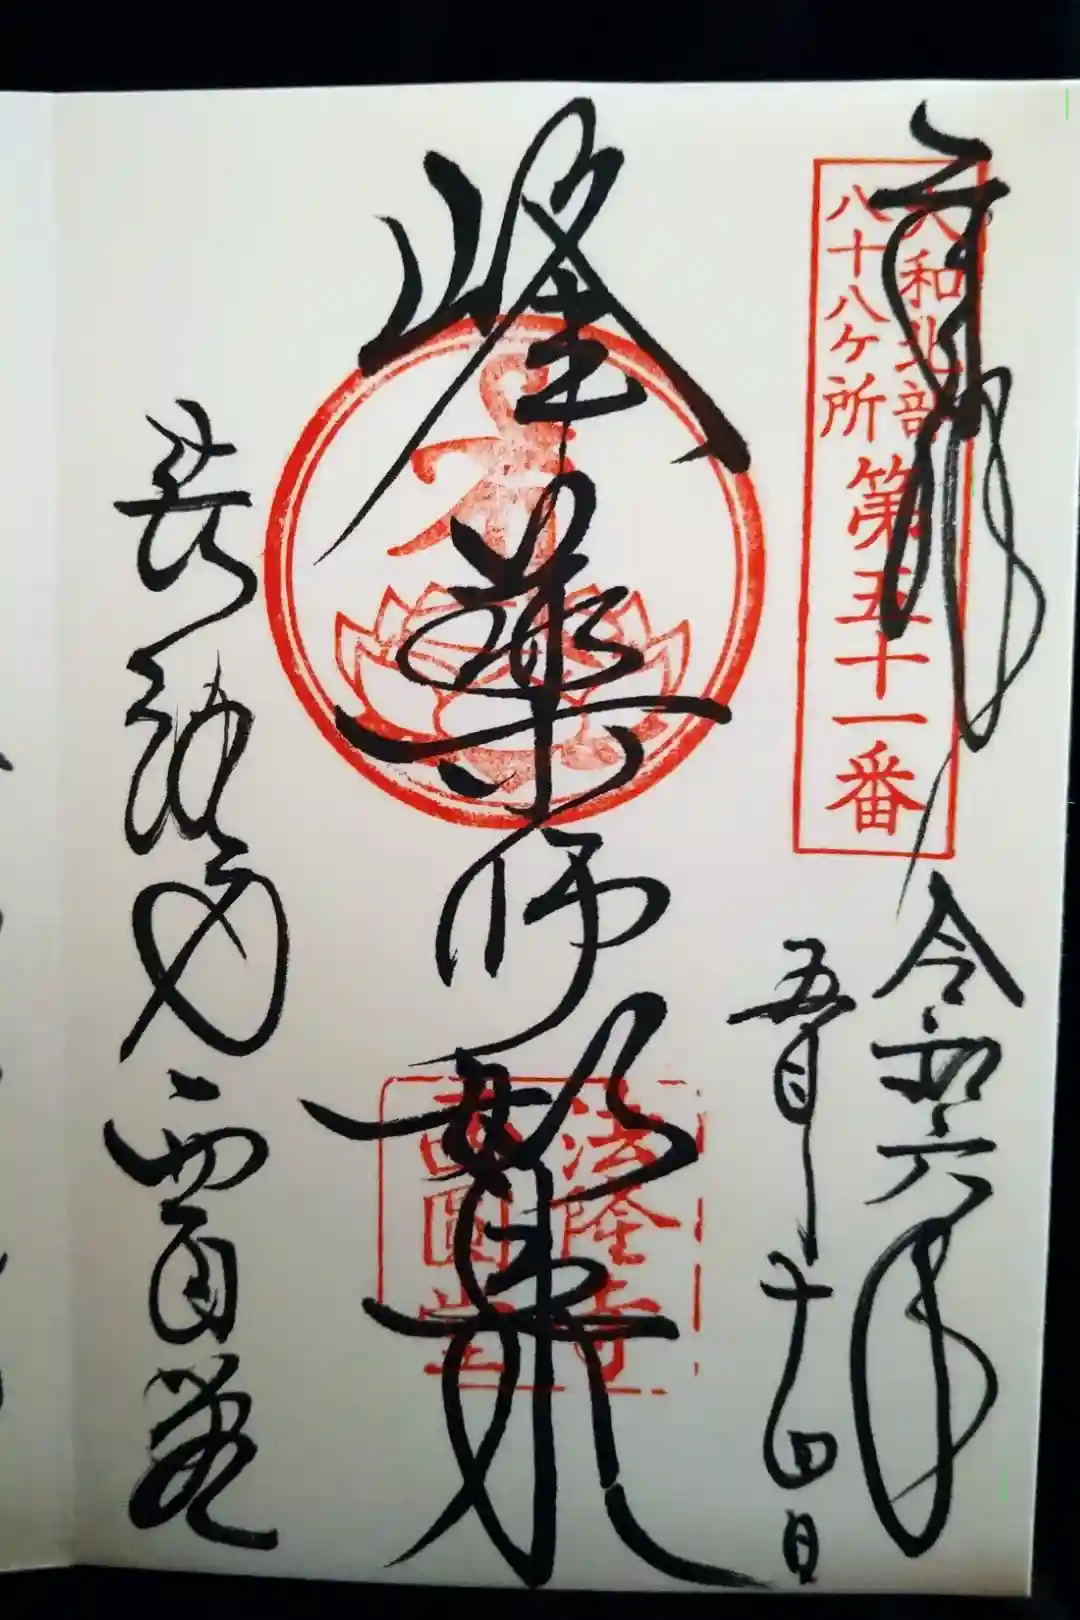 奉拝
大和北部
八十八ヶ所
第五十一番
令和六年
五月十四日
峰薬師如来
法隆寺
西圓堂
法隆寺西円堂